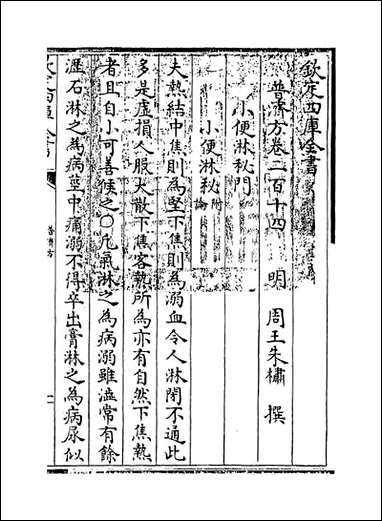 欽定四庫全書
普濟方卷二百十四
明 周王朱橚 撰
小便淋秘門
小便淋秘附論
夫熱結中焦則為堅下焦則為溺血令人淋閉不通此
多是虛損人服大散下焦客熱所為亦有自然下焦熱
者且自小可善候之○凡氣淋之為病溺雖澁常有餘
瀝石淋之為病莖中痛溺不得卒出膏淋之為病尿似
普濟方